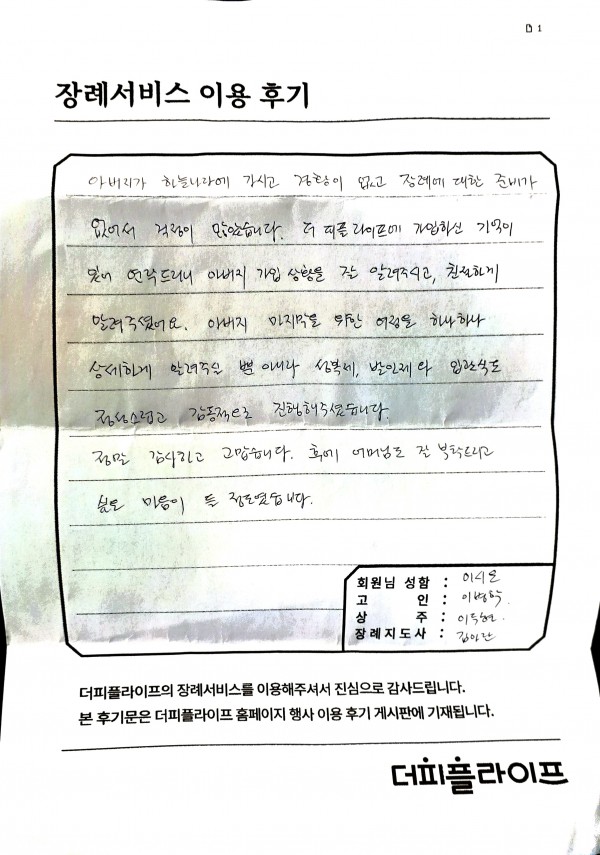 1
장례서비스 이용 후기
아버지가 하늘나라에 가시고 경황이 없고 장례에 대한 준비가
없어서 걱정이 많았습니다. 더 피플 라이프에 가입하신 기억이
있어 연락드리니 아버지 가입 상황을 잘 알려주시고, 친절하게
알려주셨어요. 아버지 마지막을 위한 여정을 하나하나
상세하게 알려주실 뿐 아니라 성복제, 발인제와 입관식도
정성스럽고 감동적으로 진행해주셨습니다.
정말 감사하고 고맙습니다. 후에 어머님도 잘 부탁드리고
싶은 마음이 들 정도였습니다.
회원님 성함 : 이시온
고 인 : 이병학
상 주 : 이두현
장례지도사 :
더피플라이프의 장례서비스를 이용해주셔서 진심으로 감사드립니다.
본 후기문은 더피플라이프 홈페이지 행사 이용 후기 게시판에 기재됩니다.
더피플라이프